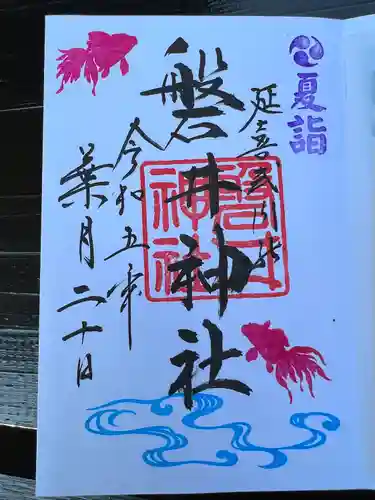 夏詣
延喜式内社
磐井神社
令和五年
葉月二十日
磐井神社